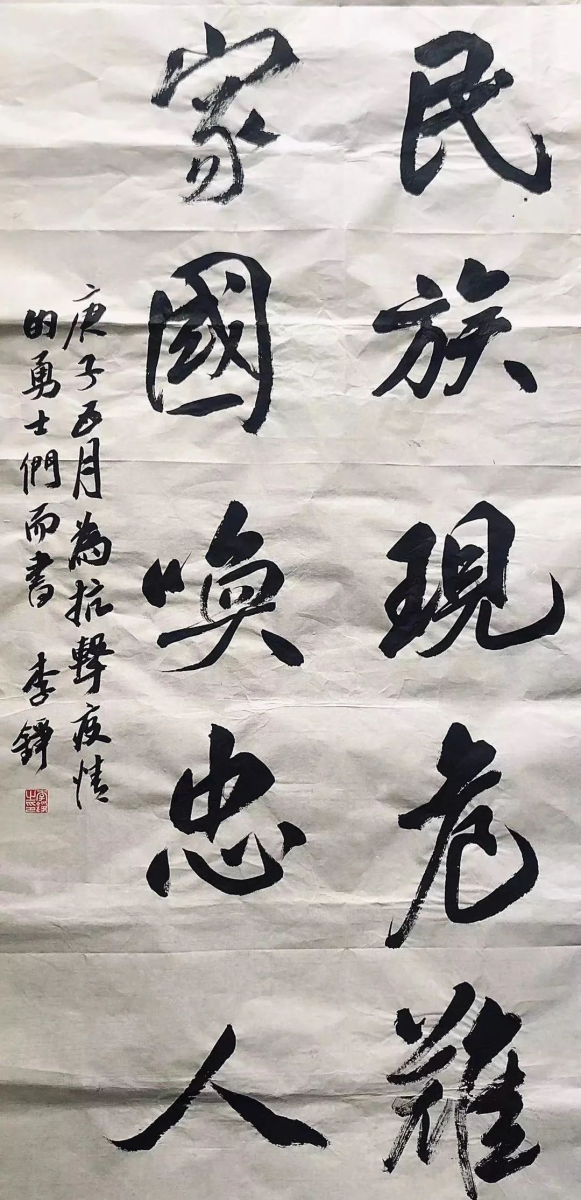 民族現危難
家國喚忠人
庚子正月為抗擊疫情
的勇士們而書 李鐸